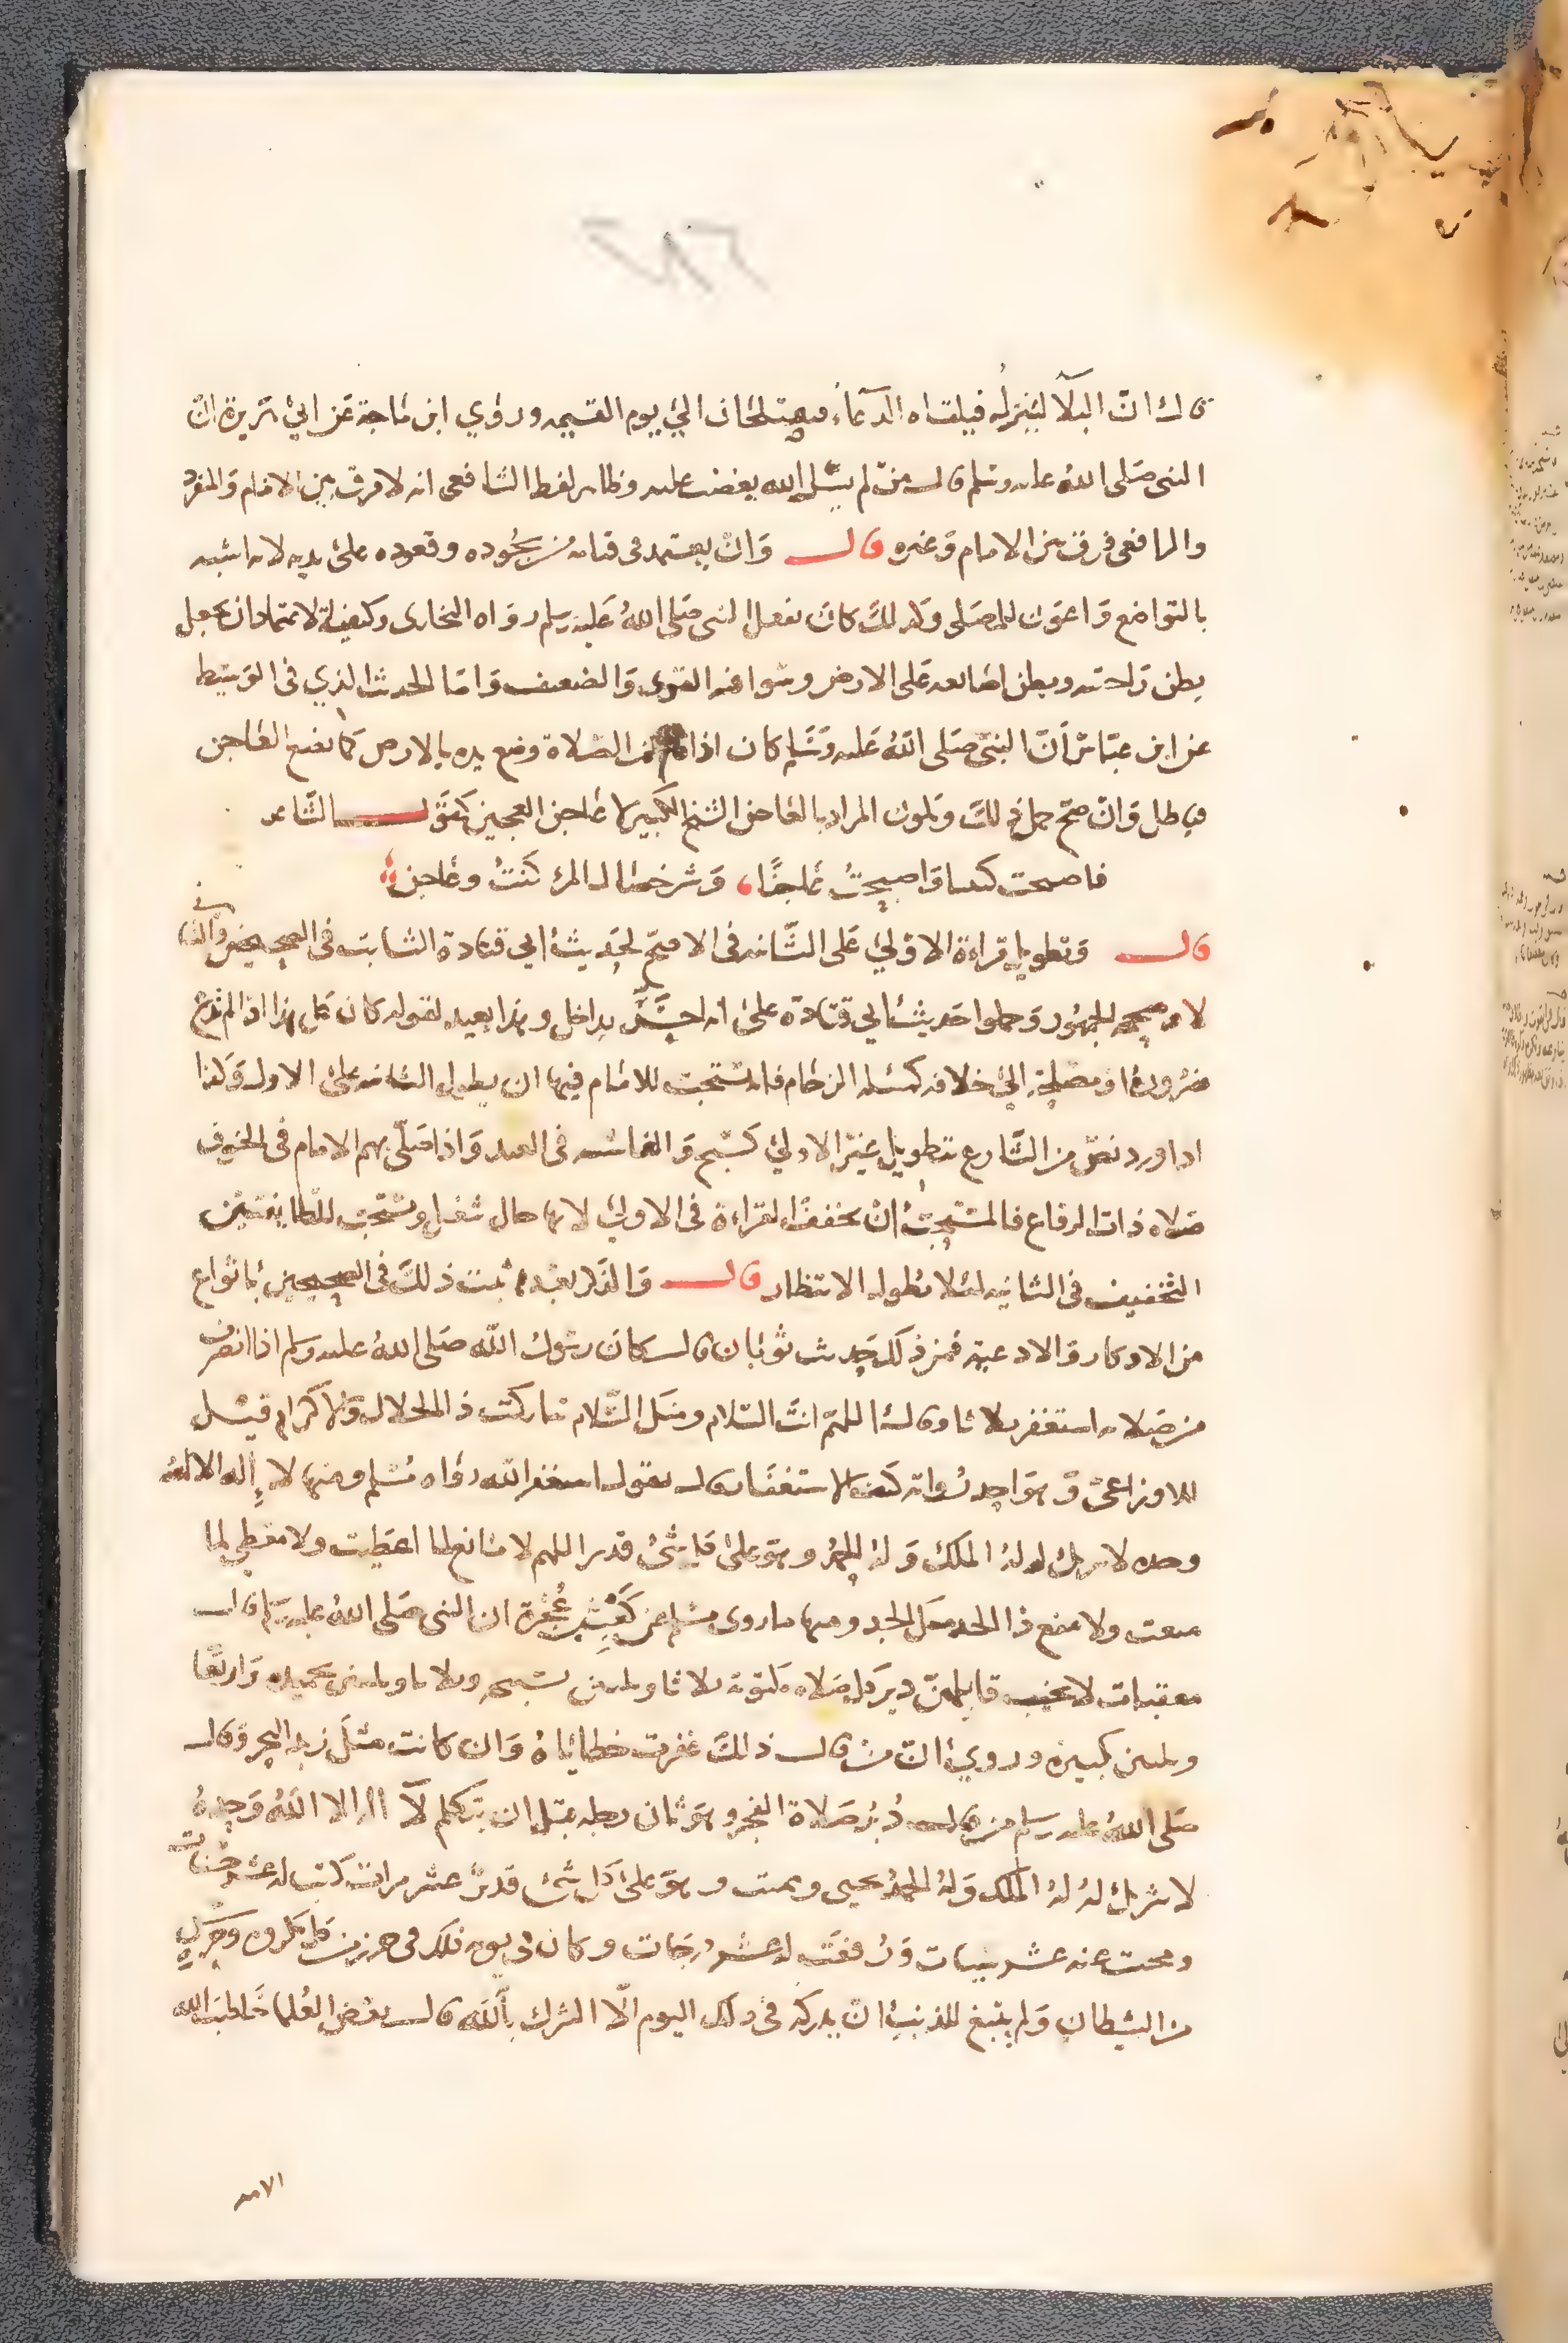 قال ان البلا لينزل فيلقاه الدعاء فيعتلجان الى يوم القيمة وروي ابن ماجة عن ابي هريرة ان
النبي صلى الله عليه وسلم قال من لم يسل الله يغضب عليه وظاهر لفظ الشافعي انه لا فرق بين الامام والمنفرد
والرافعي فرق بين الامام وغيره قال وان يعتمد في قيامه من سجوده وقعوده على يديه لانه اشبه
بالتواضع واعون للمصلى وكذلك كان يفعل النبي صلى الله عليه وسلم رواه البخاري وكيفية الاعتماد ان يجعل
بطن راحتيه وبطن اصابعه على الارض وسوا فيه القوى والضعيف واما الحديث الذي في الوسيط
عن ابن عباس أن النبي صلى الله عليه وسلم كان اذا قام من الصلاة وضع يده بالارض كما يضع العاجن
فباطل وان صح حمل ذلك ويكون المراد بالعاجن الشيخ الكبير لا عاجن العجين كقول الشاعر
فاصبحت كنتيا واصبحت عاجنا، وشر خصال المرء كنت وعاجن
قال وتطويل قراءة الاولى على الثانية في الاصح لحديث ابي قتادة الثابت في الصحيحين والثاني
لا وصححه الجمهور وحملوا حديث ابي قتادة على انه احس بداخل وهذا بعيد لقوله كان كل هذا اذا لم تدع
ضرورة او مصلحة الى خلافه كمسئلة الزحام فانه يستحب للامام فيها ان يطول الثانية على الاولى وكذا
اذا ورد نص من الشارع بتطويل غير الاولى كسبح والغاشية في العيد واذا صلى بهم الامام في الخوف
صلاة ذات الرقاع فالمستحب ان يخفف القراءة في الاولى لانها حال شغل ويستحب للطايفتين
التخفيف في الثانية لئلا يطول الانتظار قال والذكر بعدها ثبت ذلك في الصحيحين بانواع
من الاذكار والادعية فمن ذلك حديث ثوبان قال كان رسول الله صلى الله عليه وسلم اذا انصرف
من صلاته استغفر ثلاثا وقال اللهم انت السلام ومنك السلام تباركت ذا الجلال والاكرام قيل
للاوزاعي وهو احد رواته كيف الاستغفار قال يقول استغفر الله رواه مسلم ومنها لا إله الا الله
وحده لا شريك له له الملك وله الحمد وهو على كل شئ قدير اللهم لا مانع لما اعطيت ولا معطي لما
منعت ولا ينفع ذا الجد منك الجد ومنها ما روى مسلم عن كعب بن عجرة ان النبي صلى الله عليه وسلم قال
معقبات لا يخيب قايلهن دبر كل صلاة مكتوبة ثلاثا وثلاثين تسبيحة وثلاثا وثلاثين تحميدة واربعا
وثلاثين تكبيرة وروي ان من قال ذلك غفرت خطاياه وان كانت مثل زبد البحر وقال
صلى الله عليه وسلم من قال دبر صلاة الفجر وهو ثان رجله قبل ان يتكلم لا اله الا الله وحده
لا شريك له له الملك وله الحمد يحيى ويميت وهو على كل شئ قدير عشر مرات كتب له عشر حسنات
ومحت عنه عشر سيات ورفعت له عشر درجات وكان في يومه ذلك في حرز من كل مكروه وحرس
من الشيطان ولم ينبغ للذنب ان يدركه في ذلك اليوم الا الشرك بالله قال بعض العلما خاطب الله
الامه